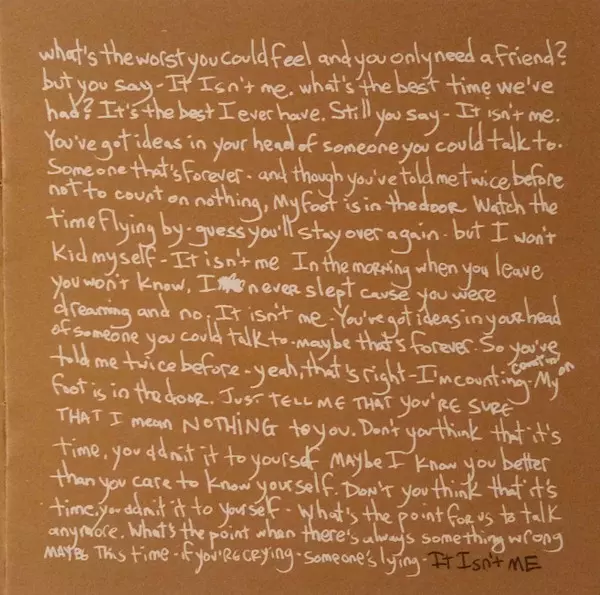 what's the worst you could feel and you only need a friend?
but you say - It Isn't me. what's the best time we've
had? It's the best I ever have. Still you say - It isn't me.
You've got ideas in your head of someone you could talk to.
Someone that's forever - and though you've told me twice before
not to count on nothing, My foot is in the door Watch the
time flying by - guess you'll stay over again - but I won't
kid myself - It isn't me In the morning when you leave
you won't know, I never slept cause you were
dreaming and no. It isn't me - You've got ideas in your head
of someone you could talk to - maybe that's forever. So you've
told me twice before - yeah, that's right - I'm counting - countin' on My
foot is in the door. JUST TELL ME THAT YOU'RE SURE
THAT I mean NOTHING to you. Don't you think that it's
time, you admit it to yourself MAYBE I know you better
than you care to know yourself. Don't you think that it's
time, you admit it to yourself - What's the point for us to talk
anymore. What's the point when there's always something wrong
MAYBE This time - if you're crying - someone's lying - It Isn't ME